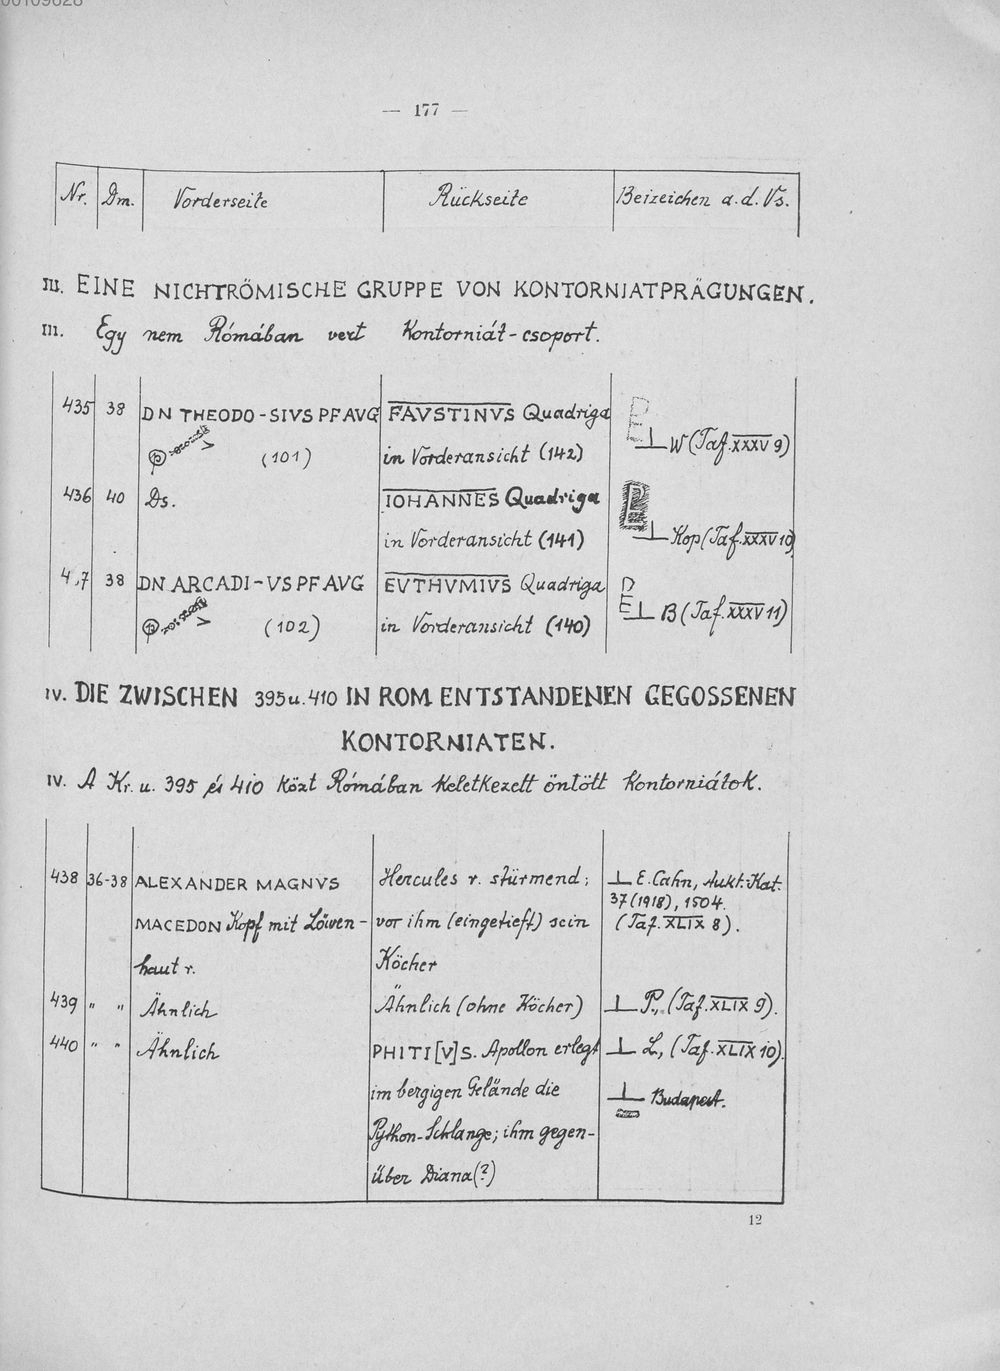 — 177 —
Nr. Dm. Vorderseite Rückseite Beizeichen a.d. Vs.
III. EINE NICHTRÖMISCHE GRUPPE VON KONTORNIATPRÄGUNGEN.
III. Egy nem Rómában vert Kontorniát-csoport.
435 38 DN THEODO-SIVS PF AVG FAVSTINVS Quadriga
(101) in Vorderansicht (142) ⊥ W (Taf. XXXV 9)
436 40 Ds. IOHANNES Quadriga
in Vorderansicht (141) ⊥ Kop (Taf. XXXV 10)
4,7 38 DN ARCADI-VS PF AVG EVTHVMIVS Quadriga
(102) in Vorderansicht (140) ⊥ B (Taf. XXXV 11)
IV. DIE ZWISCHEN 395 u. 410 IN ROM ENTSTANDENEN GEGOSSENEN
KONTORNIATEN.
IV. A Kr. u. 395 és 410 közt Rómában keletkezett öntött kontorniátok.
438 36-38 ALEXANDER MAGNVS Hercules r. stürmend; ⊥ E. Cahn, Aukt.-Kat.
37 (1918), 1504.
MACEDON Kopf mit Löwen- vor ihm (eingetieft) sein (Taf. XLIX 8).
haut r. Köcher
439 " " Ähnlich Ähnlich (ohne Köcher) ⊥ P., (Taf. XLIX 9).
440 " " Ähnlich PHITI[V]S. Apollon erlegt ⊥ L, (Taf. XLIX 10).
im bergigen Gelände die ⊥ Budapest.
Python-Schlange; ihm gegen-
über Diana (?)
12